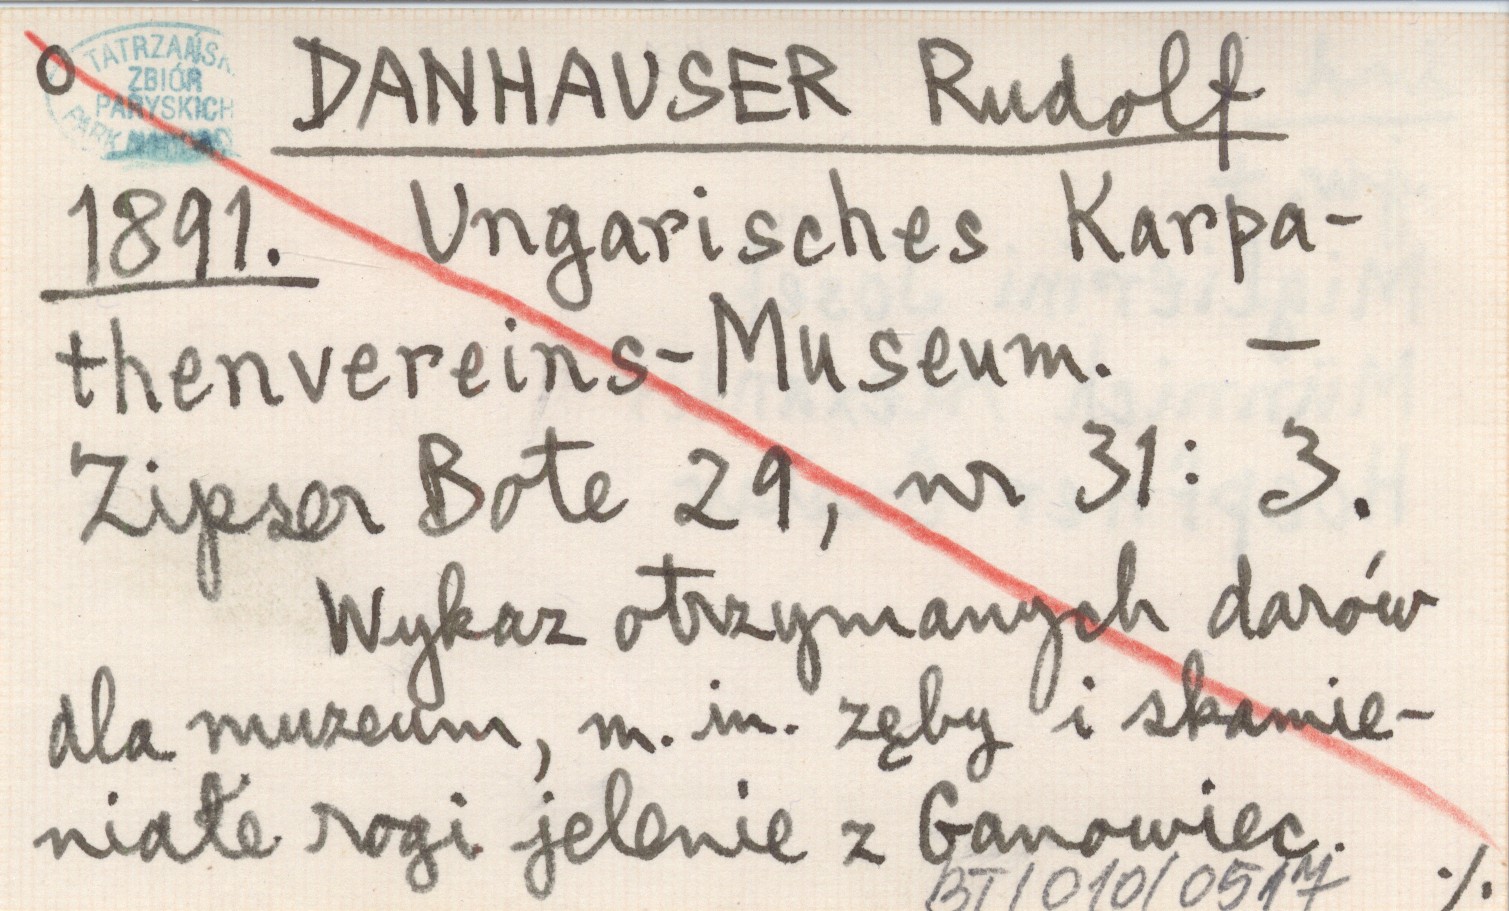 O
TATRZAŃSKI
ZBIÓR
PARYSKICH
PARK
DANHAUSER Rudolf
1891. Ungarisches Karpa-
thenvereins-Museum. —
Zipser Bote 29, nr 31: 3.
Wykaz otrzymanych darów
dla muzeum, m. in. zęby i skamie-
niałe rogi jelenie z Ganowiec.
BT/010/0517
./.